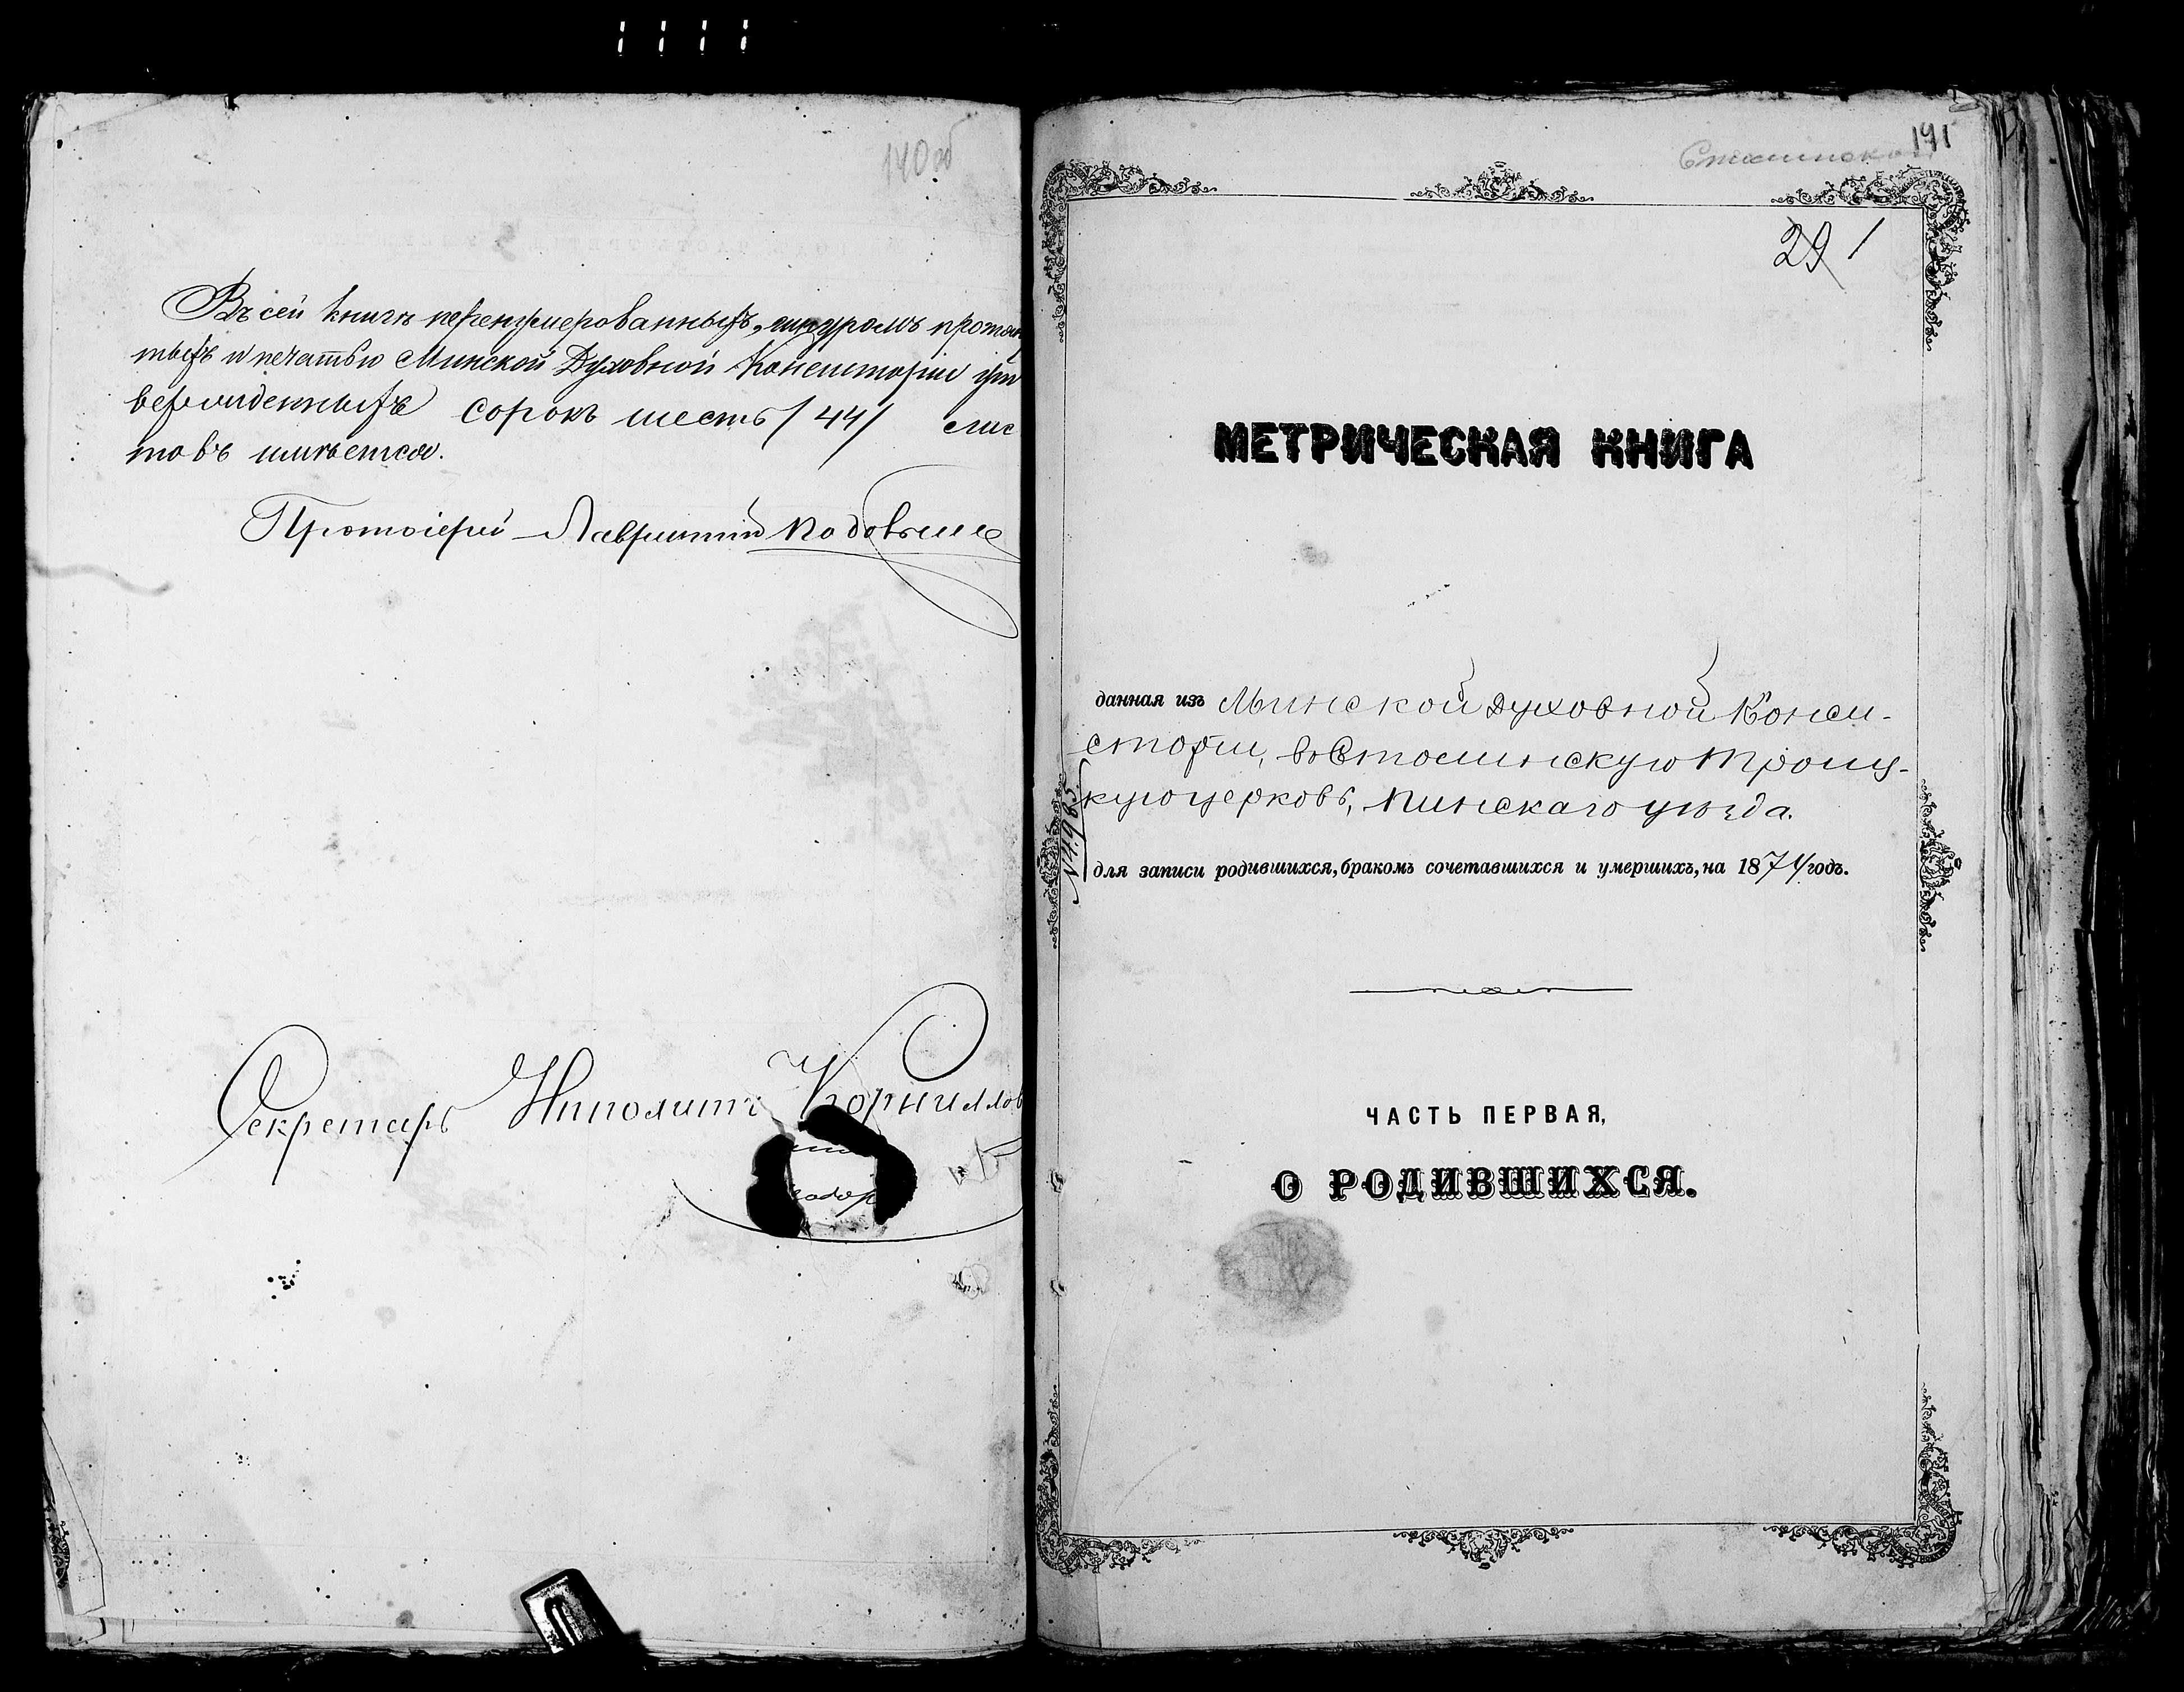 140 об
Въ сей книгѣ перенумерованныхъ, шнуромъ протян
тыхъ и печатью Минской Духовной Консисторіи ут
вержденныхъ сорокъ шесть /44/ лис
товъ имѣется.
Протоіерей Лаврентій
Секретарь Ипполитъ Корниллов
141
29 1
МЕТРИЧЕСКАЯ КНИГА
данная изъ Минской Духовной Конси-
сторіи, въ Столинскую Троиц-
кую церковь, Пинскаго уѣзда.
№ 4985
для записи родившихся, бракомъ сочетавшихся и умершихъ, на 1874 годъ.
ЧАСТЬ ПЕРВАЯ,
О РОДИВШИХСЯ.